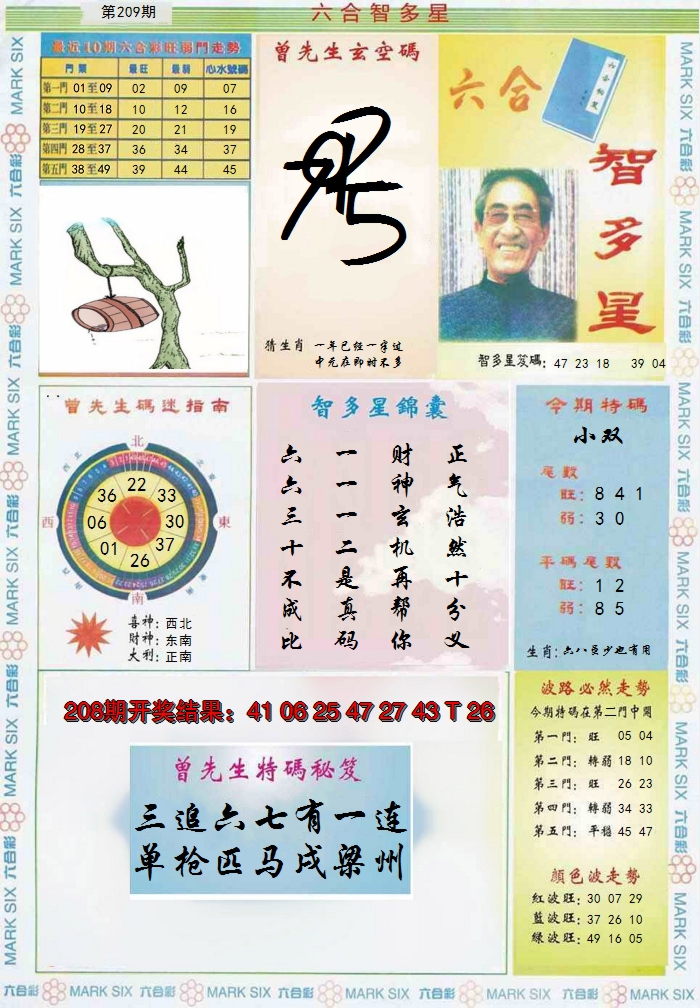 第209期
六合智多星
最近10期六合彩旺弱門走勢
門類 最旺 最弱 心水號碼
第一門 01至09 02 09 07
第二門 10至18 10 12 16
第三門 19至27 20 21 19
第四門 28至37 36 34 37
第五門 38至49 39 44 45
曾先生玄空碼
猜生肖 一年已经一字过
中元在即时不多
六合
智多星
智多星笈碼: 47 23 18 39 04
曾先生碼迷指南
北
西
東
南
22
33
30
37
26
01
06
36
喜神: 西北
財神: 东南
大利: 正南
智多星錦囊
正气浩然十分义
财神玄机再帮你
一一一二是真码
六六三十不成比
今期特碼
小双
尾數
旺: 8 4 1
弱: 3 0
平碼尾數
旺: 1 2
弱: 8 5
生肖: 六八百少也有用
208期开奖结果: 41 06 25 47 27 43 T 26
曾先生特碼秘笈
三追六七有一连
单枪匹马戍梁州
波路必然走勢
今期特碼在第二門中開
第一門: 旺 05 04
第二門: 轉弱 18 10
第三門: 旺 26 23
第四門: 轉弱 34 33
第五門: 平穩 45 47
顔色波走勢
紅波旺: 30 07 29
藍波旺: 37 26 10
綠波旺: 49 16 05
六合彩 MARK SIX 六合彩 MARK SIX 六合彩 MARK SIX 六合彩 MARK SIX 六合彩